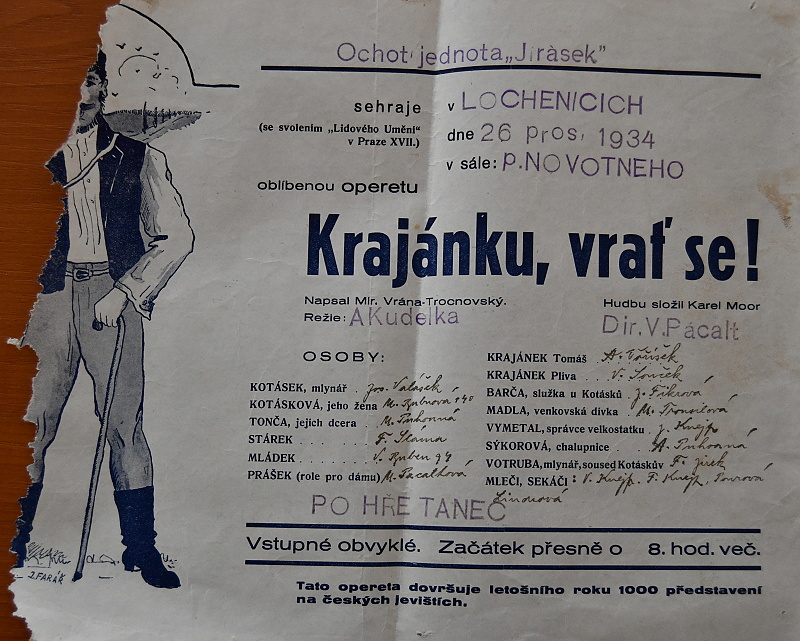 Ochot. jednota „Jirásek"
sehraje v LOCHENICICH
(se svolením „Lidového Umění"
v Praze XVII.)
dne 26 pros. 1934
v sále: P. NOVOTNEHO
oblíbenou operetu
Krajánku, vrať se!
Napsal Mir. Vrána-Trocnovský.
Hudbu složil Karel Moor
Režie: A Kudelka
Dir. V. Pácalt
OSOBY:
KOTÁSEK, mlynář . Jos. Valášek
KOTÁSKOVÁ, jeho žena M.
TONČA, jejich dcera . M.
STÁREK . . . . . . F. Sláma
MLÁDEK . . . . . V. Ruben
PRÁŠEK (role pro dámu) M. Pacaltová
KRAJÁNEK Tomáš . A. Voříšek
KRAJÁNEK Pliva . V. Souček
BARČA, služka u Kotásků J. Fikrová
MADLA, venkovská dívka . M.
VYMETAL, správce velkostatku . J. Knejp
SÝKOROVÁ, chalupnice . A.
VOTRUBA, mlynář, soused Kotáskův F. Jirek
MLEČI, SEKÁČI: V. Knejp. F. Knejp,
PO HŘE TANEC
Vstupné obvyklé. Začátek přesně o 8. hod. več.
Tato opereta dovršuje letošního roku 1000 představení
na českých jevištích.
J. FARÁŘ